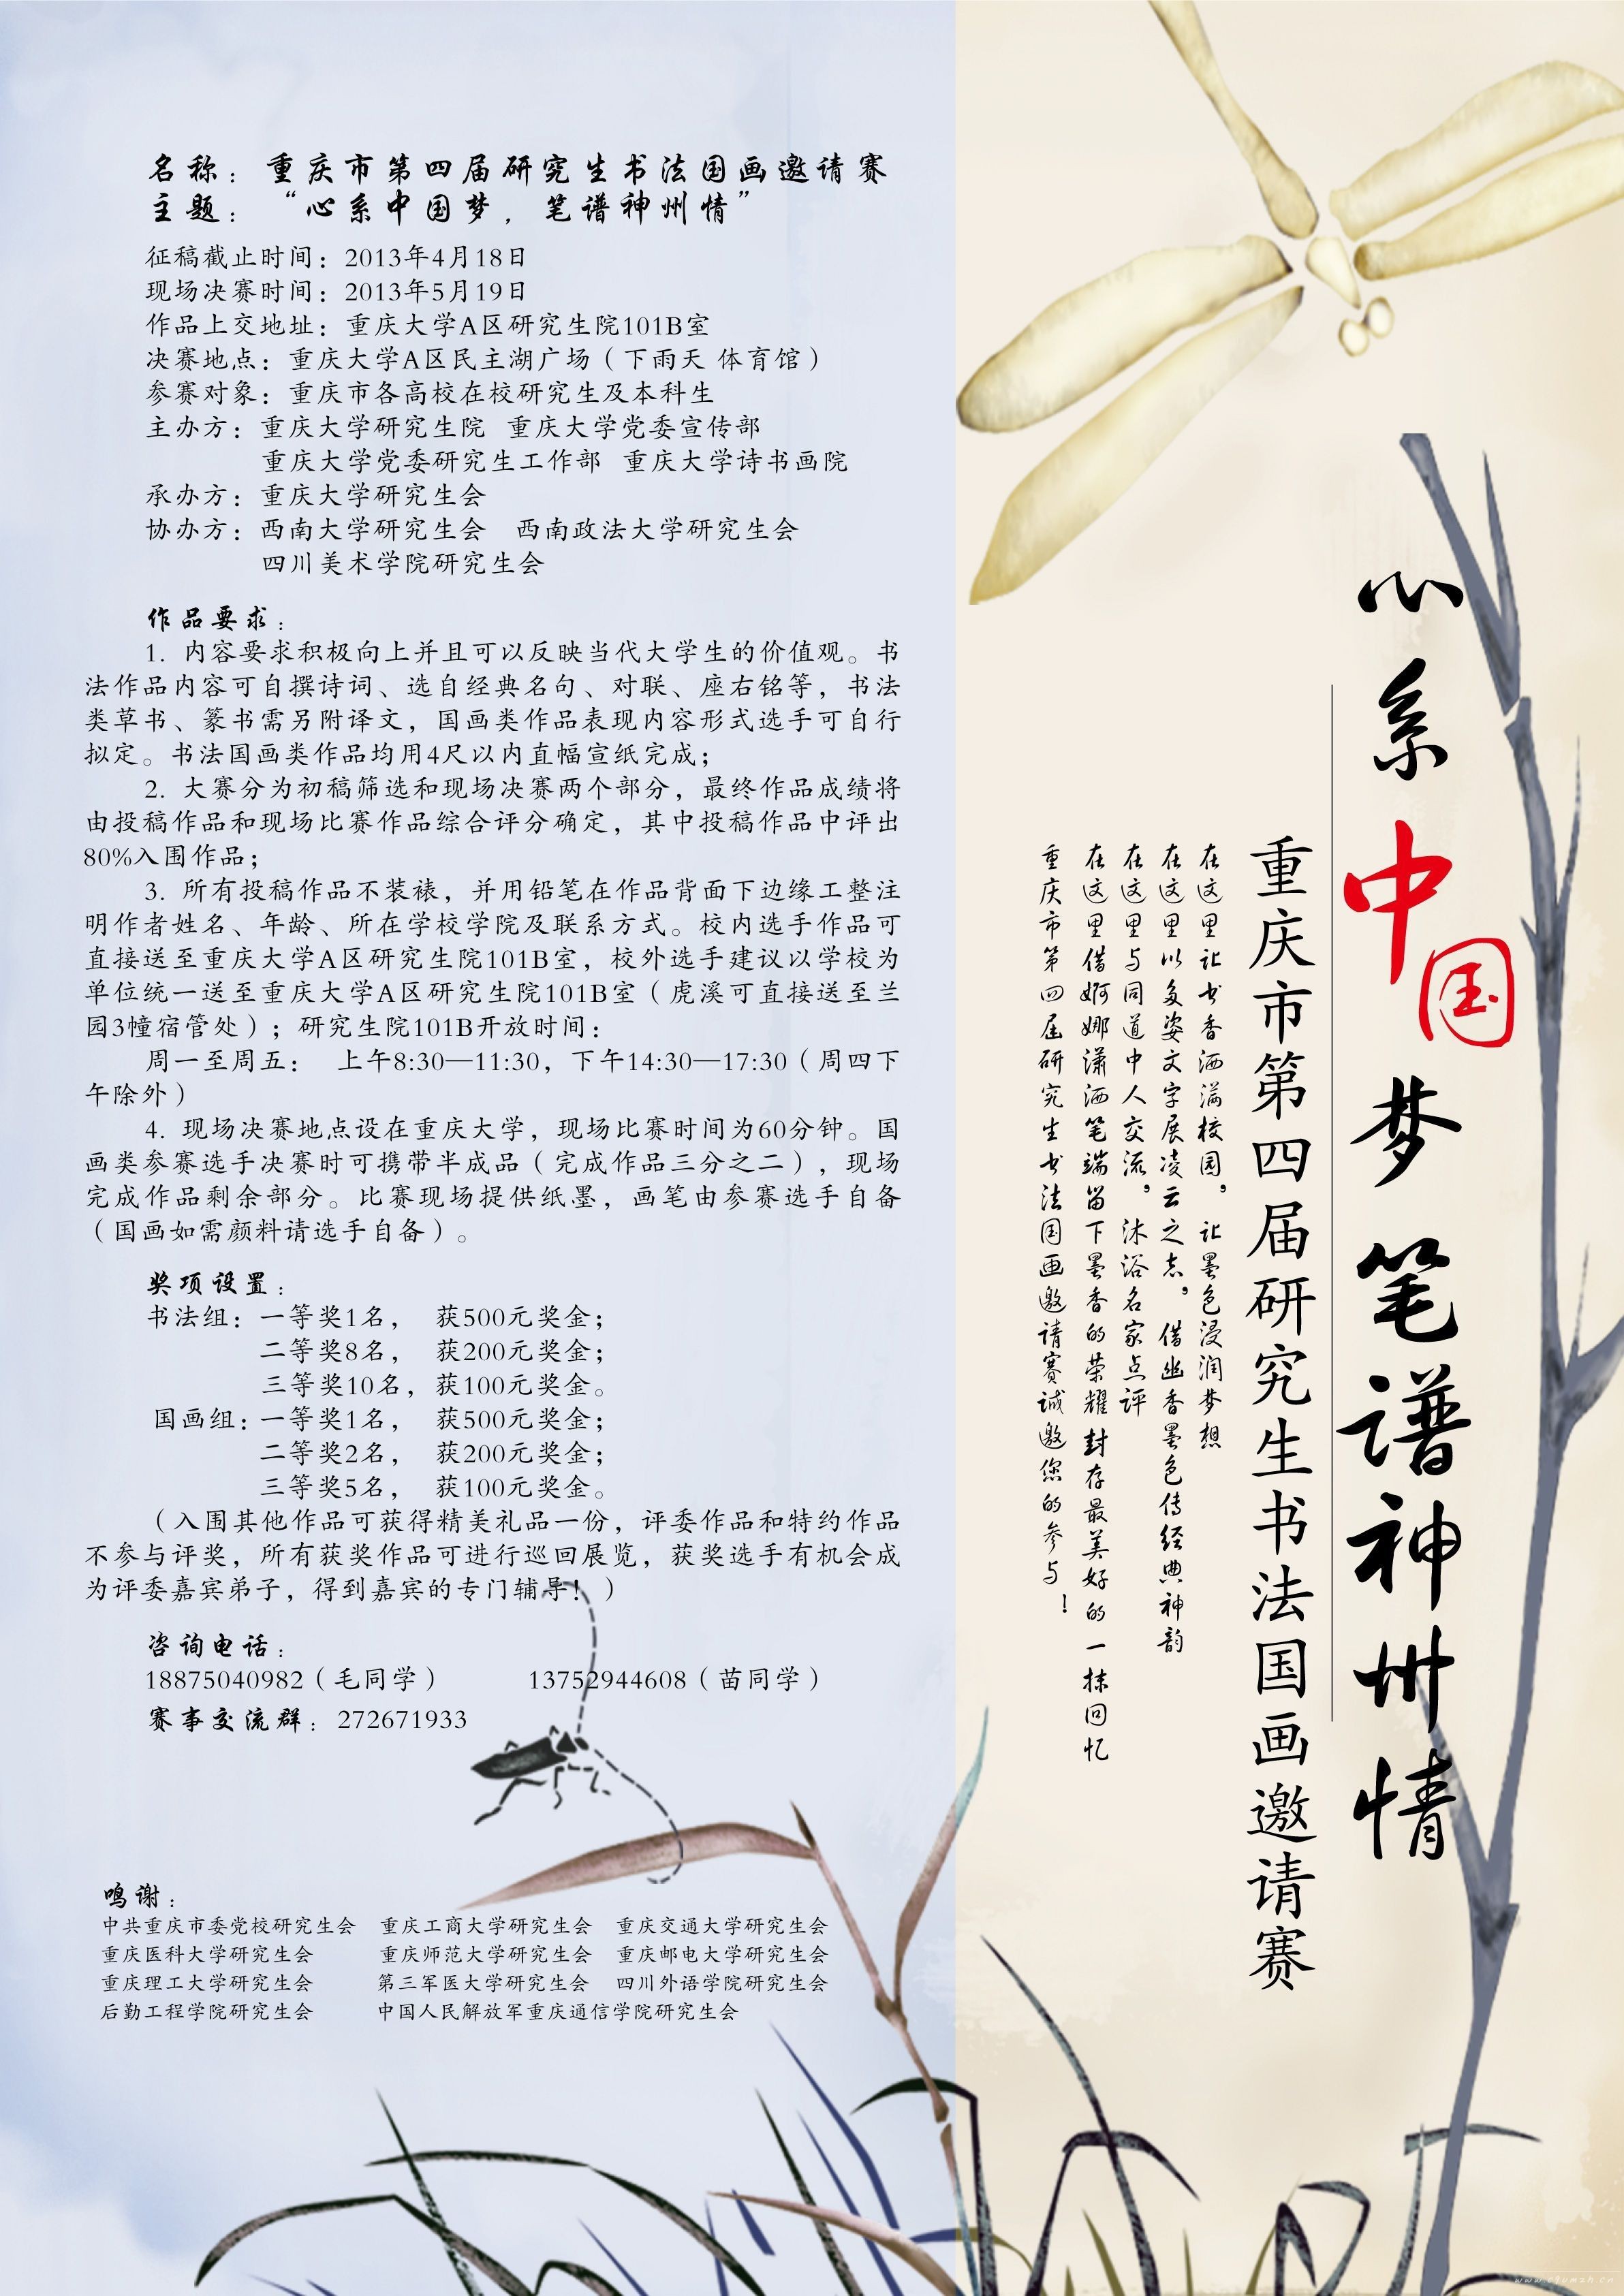 名称：重庆市第四届研究生书法国画邀请赛
主题：“心系中国梦，笔谱神州情”
征稿截止时间：2013年4月18日
现场决赛时间：2013年5月19日
作品上交地址：重庆大学A区研究生院101B室
决赛地点：重庆大学A区民主湖广场（下雨天 体育馆）
参赛对象：重庆市各高校在校研究生及本科生
主办方：重庆大学研究生院 重庆大学党委宣传部
重庆大学党委研究生工作部 重庆大学诗书画院
承办方：重庆大学研究生会
协办方：西南大学研究生会 西南政法大学研究生会
四川美术学院研究生会
作品要求：
1. 内容要求积极向上并且可以反映当代大学生的价值观。书
法作品内容可自撰诗词、选自经典名句、对联、座右铭等，书法
类草书、篆书需另附译文，国画类作品表现内容形式选手可自行
拟定。书法国画类作品均用4尺以内直幅宣纸完成；
2. 大赛分为初稿筛选和现场决赛两个部分，最终作品成绩将
由投稿作品和现场比赛作品综合评分确定，其中投稿作品中评出
80%入围作品；
3. 所有投稿作品不装裱，并用铅笔在作品背面下边缘工整注
明作者姓名、年龄、所在学校学院及联系方式。校内选手作品可
直接送至重庆大学A区研究生院101B室，校外选手建议以学校为
单位统一送至重庆大学A区研究生院101B室（虎溪可直接送至兰
园3幢宿管处）；研究生院101B开放时间：
周一至周五： 上午8:30—11:30，下午14:30—17:30（周四下
午除外）
4. 现场决赛地点设在重庆大学，现场比赛时间为60分钟。国
画类参赛选手决赛时可携带半成品（完成作品三分之二），现场
完成作品剩余部分。比赛现场提供纸墨，画笔由参赛选手自备
（国画如需颜料请选手自备）。
奖项设置：
书法组：一等奖1名， 获500元奖金；
二等奖8名， 获200元奖金；
三等奖10名，获100元奖金。
国画组：一等奖1名， 获500元奖金；
二等奖2名， 获200元奖金；
三等奖5名， 获100元奖金。
（入围其他作品可获得精美礼品一份，评委作品和特约作品
不参与评奖，所有获奖作品可进行巡回展览，获奖选手有机会成
为评委嘉宾弟子，得到嘉宾的专门辅导！）
咨询电话：
18875040982（毛同学） 13752944608（苗同学）
赛事交流群：272671933
鸣谢：
中共重庆市委党校研究生会 重庆工商大学研究生会 重庆交通大学研究生会
重庆医科大学研究生会 重庆师范大学研究生会 重庆邮电大学研究生会
重庆理工大学研究生会 第三军医大学研究生会 四川外语学院研究生会
后勤工程学院研究生会 中国人民解放军重庆通信学院研究生会
心系中国梦 笔谱神州情
重庆市第四届研究生书法国画邀请赛
在这里让书香洒满校园，让墨色浸润梦想
在这里以多姿文字展凌云之志，借幽香墨色传经典神韵
在这里与同道中人交流，沐浴名家点评
在这里借婀娜潇洒笔端留下墨香的荣耀封存最美好的一抹回忆
重庆市第四届研究生书法国画邀请赛诚邀您的参与！